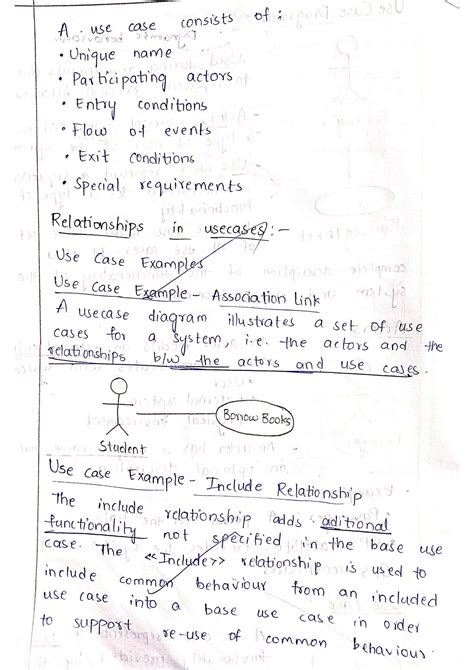 A use case consists of :
• Unique name
• Participating actors
• Entry conditions
• Flow of events
• Exit conditions
• Special requirements
Relationships in usecases :-
Use Case Examples
Use Case Example - Association Link
A usecase diagram illustrates a set of use
cases for a system, i.e. the actors and the
relationships b/w the actors and use cases.
Borrow Books
Student
Use case Example - Include Relationship
The include relationship adds aditional
functionality not specified in the base use
case. The <<Include>> relationship is used to
include common behaviour from an included
use case into a base use case in order
to support re-use of common behaviour.